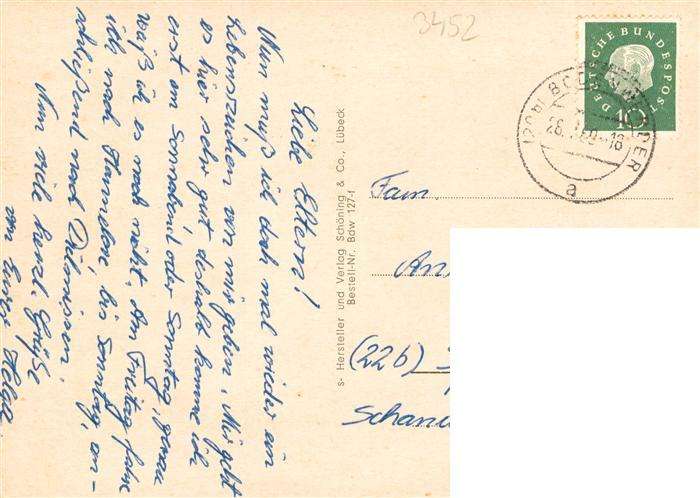 Liebe Eltern!
Nun muß ich doch mal wieder ein
Lebenszeichen von mir geben. Mir geht
es hier sehr gut deshalb komme ich
erst am Sonnabend oder Sonntag, genau
weiß ich es noch nicht. Am Freitag fahre
ich nach Hameln, bis Sonntag, an-
schließend nach
Nun viele herzl. Grüße
von Eurer Helga
s- Hersteller und Verlag Schöning & Co., Lübeck
Bestell-Nr. Bdw 127-f
3452
DEUTSCHE BUNDESPOST
10
(20a) BODENWERDER
-18
a
Fam.
An
(22b)
Schan